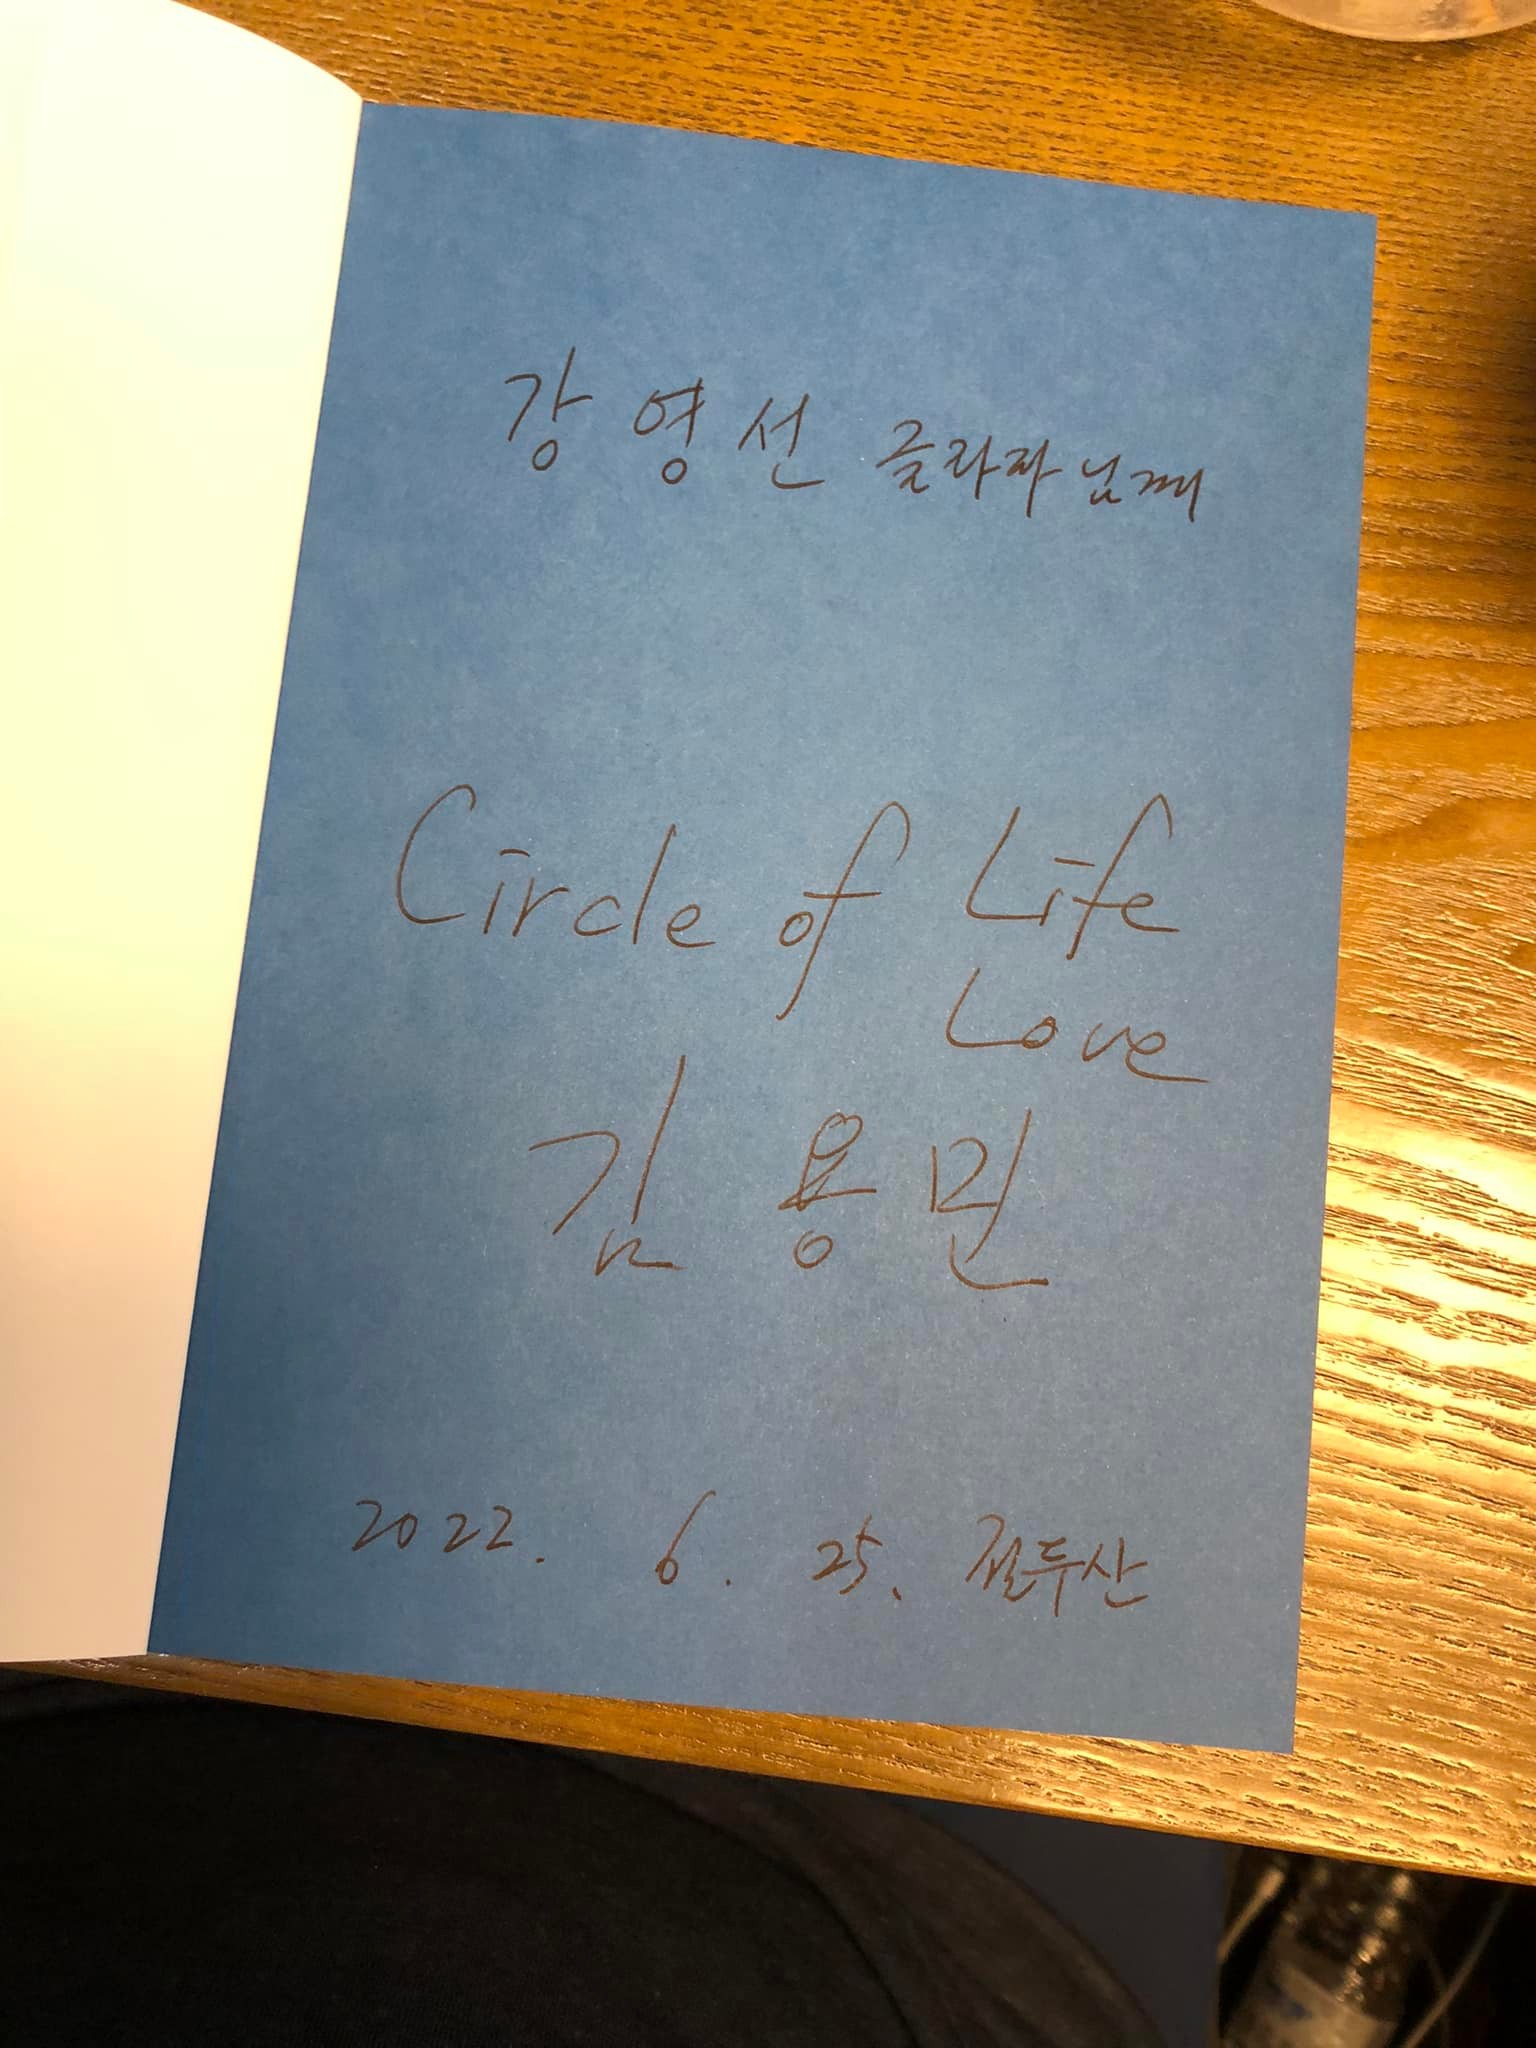 강 영 선 글라라 님께
Circle of Life
Love
김 용 민
2022. 6. 25. 절두산